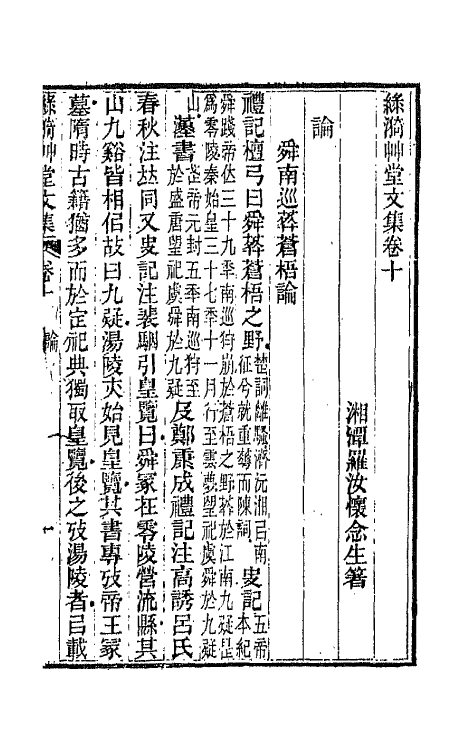 綠漪艸堂文集卷十
湘潭羅汝懷念生箸
論
舜南巡葬蒼梧論
禮記檀弓曰舜葬蒼梧之野楚詞離騷濟沅湘㠯南征兮就重華而陳詞史記五帝本紀
舜踐帝位三十九年南巡狩崩於蒼梧之野葬於江南九疑是爲零陵秦始皇三十七年十一月行至雲夢望祀虞舜於九疑
山漢書武帝元封五年南巡狩至於盛唐望祀虞舜於九疑及鄭康成禮記注高誘呂氏
春秋注竝同又史記注裴駰引皇覽曰舜冢在零陵營浦縣其
山九谿皆相佀故曰九疑湯陵亦始見皇覽其書專攷帝王冢
墓隋時古籍猶多而於定祀典獨取皇覽後之攷湯陵者㠯載
綠漪艸堂文集 卷十 論 一